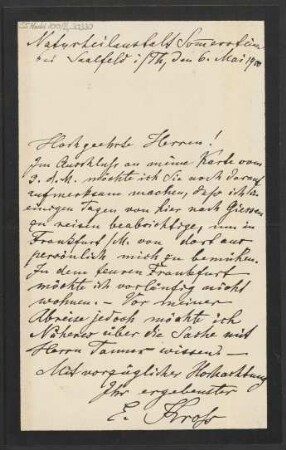 Naturheilanstalt Sommerstein
bei Saalfeld i/Th, den 6. Mai 19
Hochgeehrte Herren!
Im Anschluss an meine Karte vom
3. d. M. möchte ich Sie noch darauf
aufmerksam machen, dass ich in
einigen Tagen von hier nach Giessen
zu reisen beabsichtige, um in
Frankfurt /M. von dort aus
persönlich mich zu bemühen.
In dem teuren Frankfurt
möchte ich vorläufig nicht
wohnen. – Vor meiner
Abreise jedoch möchte ich
Näheres über die Sache mit
Herrn Tanner wissen. –
Mit vorzüglicher Hochachtung
Ihr ergebenster
E. Kross